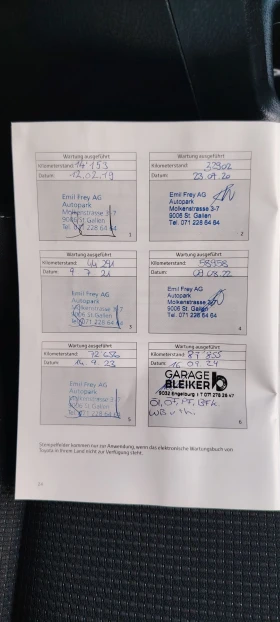 Wartung ausgeführt
Kilometerstand: 14'153
Datum: 12.02.19
Emil Frey AG
Autopark
Molkenstrasse 3-7
9006 St. Gallen
Tel. 071 228 64 64
1
Wartung ausgeführt
Kilometerstand:
Datum: 23.09.20
Emil Frey AG
Autopark
Molkenstrasse 3-7
9006 St. Gallen
Tel. 071 228 64 64
2
Wartung ausgeführt
Kilometerstand: 44 291
Datum: 9 7 21
Emil Frey AG
Autopark
Molkenstrasse 3-7
9006 St. Gallen
Tel. 071 228 64 64
3
Wartung ausgeführt
Kilometerstand: 58958
Datum: 09.03.22
Emil Frey AG
Autopark
Molkenstrasse
9006 St. Gallen
Tel. 071 228 64 64
4
Wartung ausgeführt
Kilometerstand:
Datum: 23
Emil Frey AG
Autopark
Molkenstrasse 3-7
9006 St. Gallen
Tel. 071 228 64 64
5
Wartung ausgeführt
Kilometerstand: 87'855
Datum: 16.09.24
GARAGE
BLEIKER
9032 Engelburg I T 071 278 26 47
6
Stempelfelder kommen nur zur Anwendung wenn das elektronische Wartungsbuch von
Toyota in Ihrem Land nicht zur Verfügung steht.